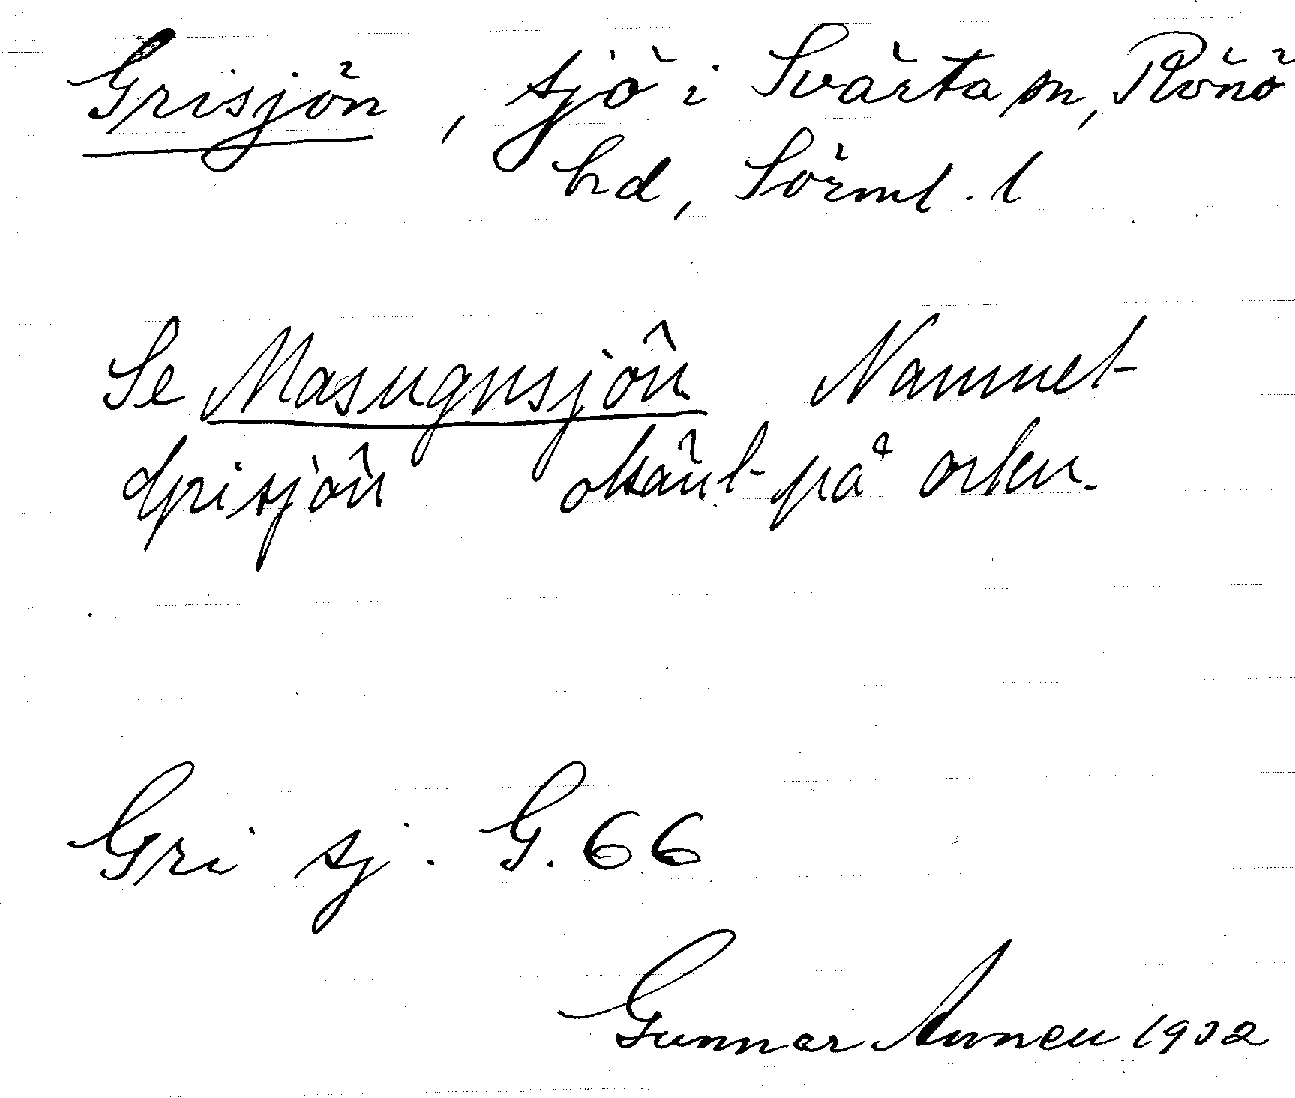 Grisjön, sjö i Svärta sn, Rönö
hd, Sörml. l
Se Masugnsjön Namnet
Grisjön okänt på orten.
Gri sj. G. 66
Gunnar 1932